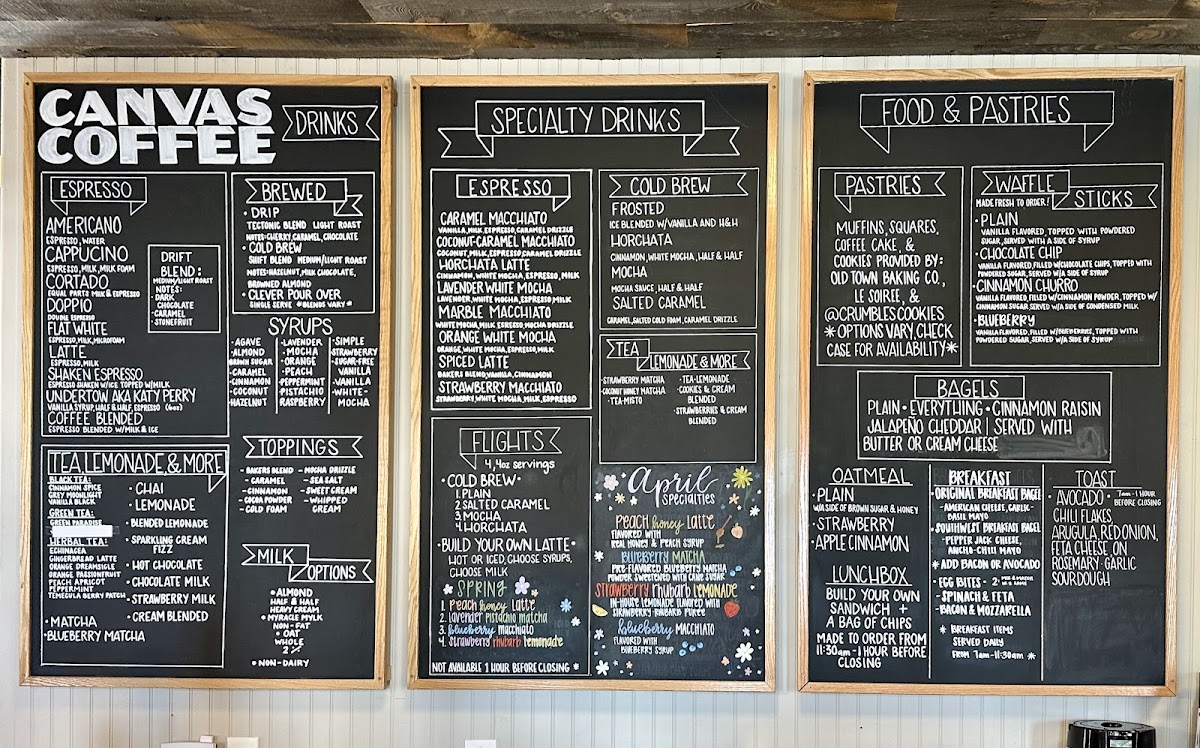 CANVAS
COFFEE
DRINKS
ESPRESSO
AMERICANO
ESPRESSO, WATER
CAPPUCINO
ESPRESSO, MILK, MILK FOAM
CORTADO
EQUAL PARTS MILK & ESPRESSO
DOPPIO
DOUBLE ESPRESSO
FLAT WHITE
ESPRESSO, MILK, MICROFOAM
LATTE
ESPRESSO, MILK
SHAKEN ESPRESSO
ESPRESSO SHAKEN W/ICE TOPPED W/MILK
UNDERTOW AKA KATY PERRY
VANILLA SYRUP, HALF & HALF, ESPRESSO (6oz)
COFFEE BLENDED
ESPRESSO BLENDED W/MILK & ICE
DRIFT
BLEND:
MEDIUM/LIGHT ROAST
NOTES:
• DARK
CHOCOLATE
• CARAMEL
• STONEFRUIT
BREWED
• DRIP
TECTONIC BLEND LIGHT ROAST
NOTES: CHERRY, CARAMEL, CHOCOLATE
• COLD BREW
SHIFT BLEND MEDIUM/LIGHT ROAST
NOTES: HAZELNUT, MILK CHOCOLATE,
BROWNED ALMOND
• CLEVER POUR OVER
SINGLE SERVE *BLENDS VARY*
SYRUPS
• AGAVE
• ALMOND
BROWN SUGAR
• CARAMEL
• CINNAMON
• COCONUT
• HAZELNUT
• LAVENDER
• MOCHA
• ORANGE
• PEACH
• PEPPERMINT
• PISTACHIO
RASPBERRY
• SIMPLE
• STRAWBERRY
• SUGAR-FREE
VANILLA
• VANILLA
• WHITE
MOCHA
TOPPINGS
- BAKERS BLEND
- CARAMEL
- CINNAMON
- COCOA POWDER
- COLD FOAM
- MOCHA DRIZZLE
- SEA SALT
- SWEET CREAM
- WHIPPED
CREAM
TEA, LEMONADE, & MORE
BLACK TEA:
CINNAMON SPICE
GREY MOONLIGHT
VANILLA BLACK
GREEN TEA:
GREEN PARADISE
HERBAL TEA:
ECHINACEA
GINGERBREAD LATTE
ORANGE DREAMSICLE
ORANGE PASSIONFRUIT
PEACH APRICOT
PEPPERMINT
TEMECULA BERRY PATCH
• MATCHA
• BLUEBERRY MATCHA
• CHAI
• LEMONADE
• BLENDED LEMONADE
• SPARKLING CREAM
FIZZ
• HOT CHOCOLATE
• CHOCOLATE MILK
• STRAWBERRY MILK
• CREAM BLENDED
MILK
OPTIONS
• ALMOND
HALF & HALF
HEAVY CREAM
• MYRACLE MYLK
NON-FAT
• OAT
WHOLE
2%
• NON-DAIRY
SPECIALTY DRINKS
ESPRESSO
CARAMEL MACCHIATO
VANILLA, MILK, ESPRESSO, CARAMEL DRIZZLE
COCONUT-CARAMEL MACCHIATO
COCONUT, MILK, ESPRESSO, CARAMEL DRIZZLE
HORCHATA LATTE
CINNAMON, WHITE MOCHA, ESPRESSO, MILK
LAVENDER WHITE MOCHA
LAVENDER, WHITE MOCHA, ESPRESSO, MILK
MARBLE MACCHIATO
WHITE MOCHA, MILK, ESPRESSO, MOCHA DRIZZLE
ORANGE WHITE MOCHA
ORANGE, WHITE MOCHA, ESPRESSO, MILK
SPICED LATTE
BAKERS BLEND, VANILLA, CINNAMON
STRAWBERRY MACCHIATO
STRAWBERRY, WHITE MOCHA, MILK, ESPRESSO
COLD BREW
FROSTED
ICE BLENDED W/VANILLA AND H&H
HORCHATA
CINNAMON, WHITE MOCHA, HALF & HALF
MOCHA
MOCHA SAUCE, HALF & HALF
SALTED CARAMEL
CARAMEL, SALTED COLD FOAM, CARAMEL DRIZZLE
TEA
LEMONADE & MORE
• STRAWBERRY MATCHA
• COCONUT HONEY MATCHA
• TEA-MISTO
• TEA-LEMONADE
• COOKIES & CREAM
BLENDED
• STRAWBERRIES & CREAM
BLENDED
FLIGHTS
4, 4oz servings
• COLD BREW •
1. PLAIN
2. SALTED CARAMEL
3. MOCHA
4. HORCHATA
• BUILD YOUR OWN LATTE •
HOT OR ICED, CHOOSE SYRUPS,
CHOOSE MILK
SPRING
1. Peach honey Latte
2. lavender pistachio matcha
3. blueberry macchiato
4. strawberry rhubarb lemonade
NOT AVAILABLE 1 HOUR BEFORE CLOSING *
April
SPECIALTIES
PEACH honey LATTE
FLAVORED WITH
REAL HONEY & PEACH SYRUP
BLUEBERRY MATCHA
PRE-FLAVORED BLUEBERRY MATCHA
POWDER SWEETENED WITH CANE SUGAR
STRAWBERRY rhubarb LEMONADE
IN-HOUSE LEMONADE FLAVORED WITH
STRAWBERRY-RHUBARB PUREE
blueberry MACCHIATO
FLAVORED WITH
BLUEBERRY SYRUP
FOOD & PASTRIES
PASTRIES
MUFFINS, SQUARES,
COFFEE CAKE, &
COOKIES PROVIDED BY:
OLD TOWN BAKING CO.,
LE SOIREE, &
@CRUMBLESCOOKIES
*OPTIONS VARY, CHECK
CASE FOR AVAILABILITY*
WAFFLE
STICKS
MADE FRESH TO ORDER!
• PLAIN
VANILLA FLAVORED, TOPPED WITH POWDERED
SUGAR, SERVED WITH A SIDE OF SYRUP
• CHOCOLATE CHIP
VANILLA FLAVORED, FILLED W/CHOCOLATE CHIPS, TOPPED WITH
POWDERED SUGAR, SERVED W/A SIDE OF SYRUP
• CINNAMON CHURRO
VANILLA FLAVORED, FILLED W/CINNAMON POWDER, TOPPED W/
CINNAMON SUGAR SERVED W/A SIDE OF CONDENSED MILK
• BLUEBERRY
VANILLA FLAVORED, FILLED W/BLUEBERRIES, TOPPED WITH
POWDERED SUGAR, SERVED W/A SIDE OF SYRUP
BAGELS
PLAIN • EVERYTHING • CINNAMON RAISIN
JALAPEÑO CHEDDAR | SERVED WITH
BUTTER OR CREAM CHEESE
OATMEAL
• PLAIN
W/A SIDE OF BROWN SUGAR & HONEY
• STRAWBERRY
• APPLE CINNAMON
LUNCHBOX
BUILD YOUR OWN
SANDWICH +
A BAG OF CHIPS
MADE TO ORDER FROM
11:30am - 1 HOUR BEFORE
CLOSING
BREAKFAST
• ORIGINAL BREAKFAST BAGEL
- AMERICAN CHEESE, GARLIC-
BASIL MAYO
• SOUTHWEST BREAKFAST BAGEL
- PEPPER JACK CHEESE,
ANCHO-CHILI MAYO
* ADD BACON OR AVOCADO
• EGG BITES - 2
- SPINACH & FETA
- BACON & MOZZARELLA
* BREAKFAST ITEMS
SERVED DAILY
FROM 7am-11:30am *
TOAST
AVOCADO • 7am - 1 HOUR
BEFORE CLOSING
CHILI FLAKES,
ARUGULA, RED ONION,
FETA CHEESE ON
ROSEMARY-GARLIC
SOURDOUGH